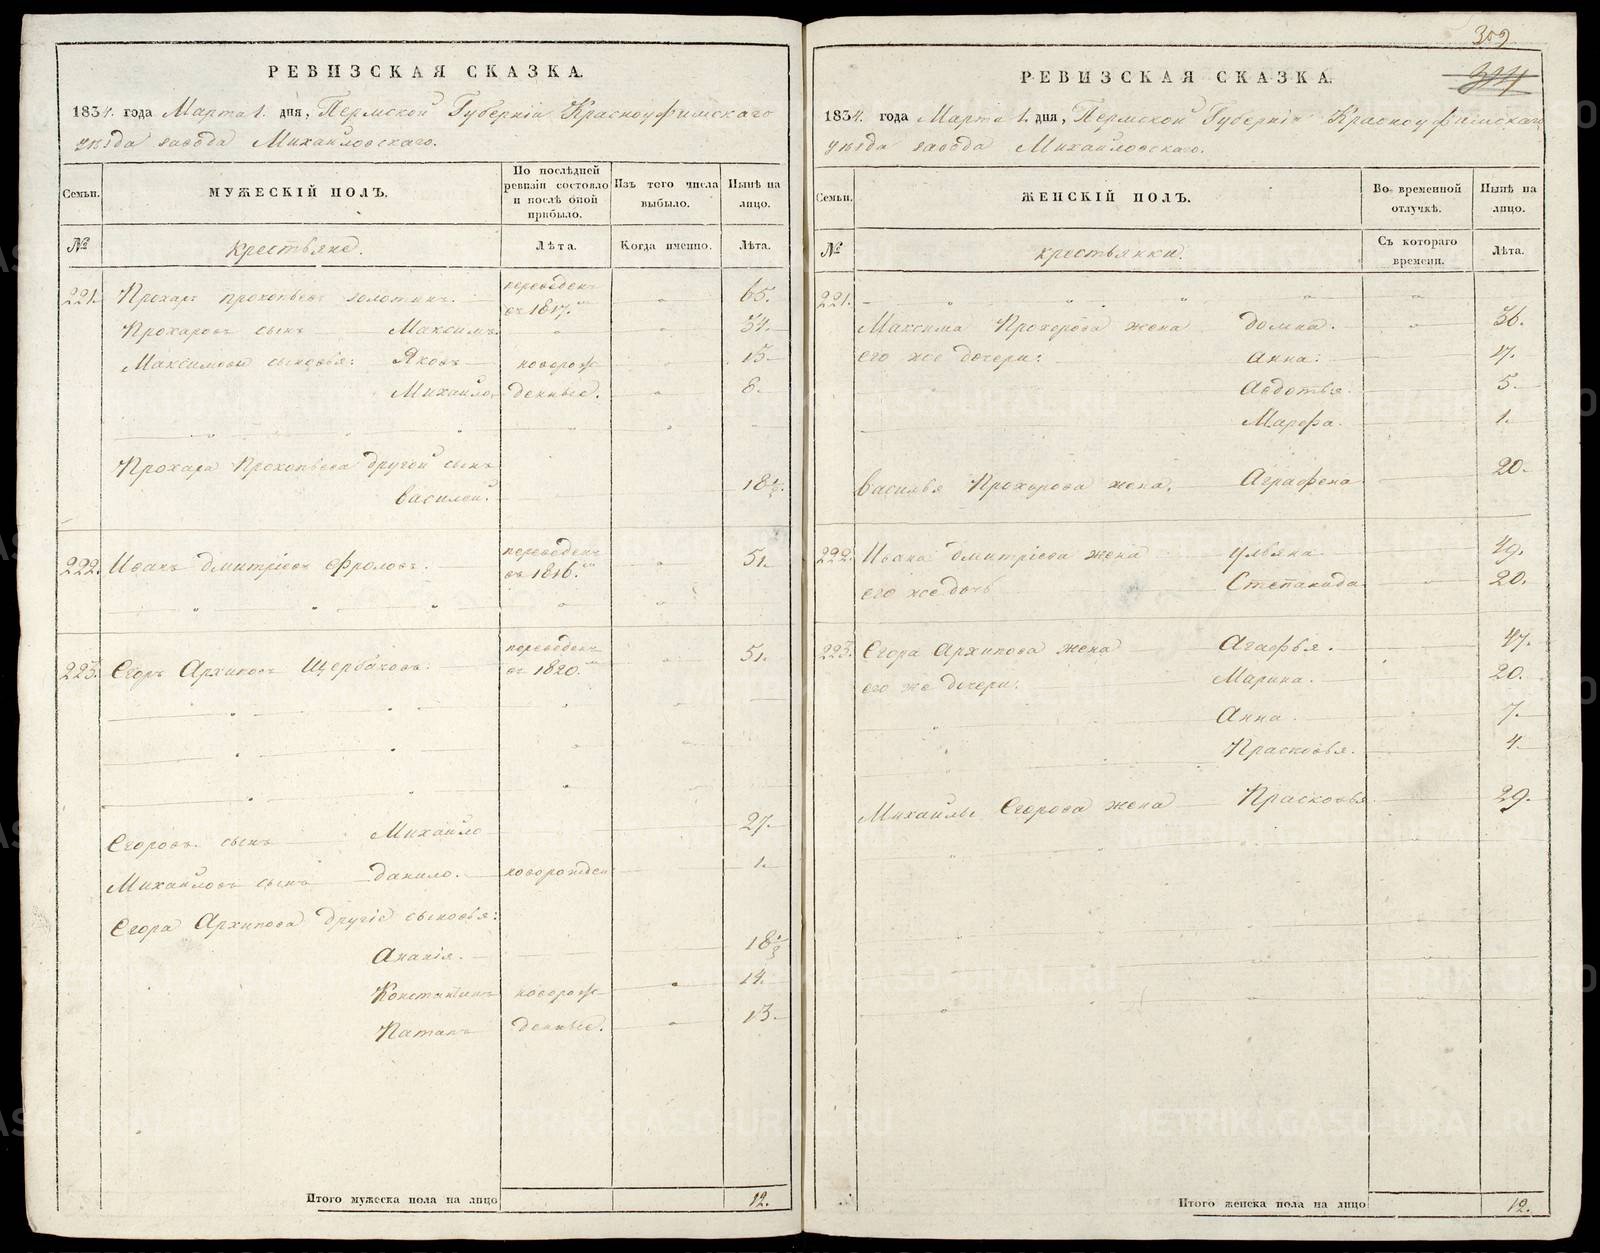 РЕВИЗСКАЯ СКАЗКА.
1834. года Марта 1. дня, Пермской Губерніи Красноуфимскаго
уѣзда завода Михайловскаго.
Семьи. МУЖЕСКІЙ ПОЛЪ. По послѣдней ревизіи состояло и послѣ оной прибыло. Изъ того числа выбыло. Нынѣ на лицо.
№ крестьяне. Лѣта. Когда именно. Лѣта.
221. Прохаръ Прокопьевъ Золотинъ. переведенъ въ 1817.мъ 65.
Прохаровъ сынъ Максимъ 34.
Максимовы сыновья: Яковъ новорож 15
Михайло, денные. 8.
Прохара Прокопьева другой сынъ
Василей. 18½.
222. Иванъ Дмитріевъ Фроловъ. переведенъ въ 1816.мъ 51.
223. Егоръ Архиповъ Щербаковъ. переведенъ въ 1820.мъ 51.
Егоровъ сынъ Михайло 27.
Михайловъ сынъ Данило. новорожден 1.
Егора Архипова другіе сыновья:
Ананія. 18
Константинъ новорож 14.
Натанъ денные. 13.
Итого мужеска пола на лицо 12.
309
РЕВИЗСКАЯ СКАЗКА.
1834. года Марта 1. дня, Пермской Губерніи Красноуфимскаго
уѣзда завода Михайловскаго.
Семьи. ЖЕНСКІЙ ПОЛЪ. Во временной отлучкѣ. Нынѣ на лицо.
№ крестьянки. Съ котораго времени. Лѣта.
221.
Максима Прохорова жена Домна. 36.
его же дочери: Анна: 17.
Авдотья. 5.
Марфа. 1.
Василья Прохорова жена. Аграфена 20.
222. Ивана Дмитріева жена Ульяна. 49.
его же дочь Степанида 20.
223. Егора Архипова жена Агафья. 47.
его же дочери: Марина. 20.
Анна. 7.
Прасковья. 4.
Михайлы Егорова жена Прасковья 29.
Итого женска пола на лицо 12.
METRIKI.GASO-URAL.RU